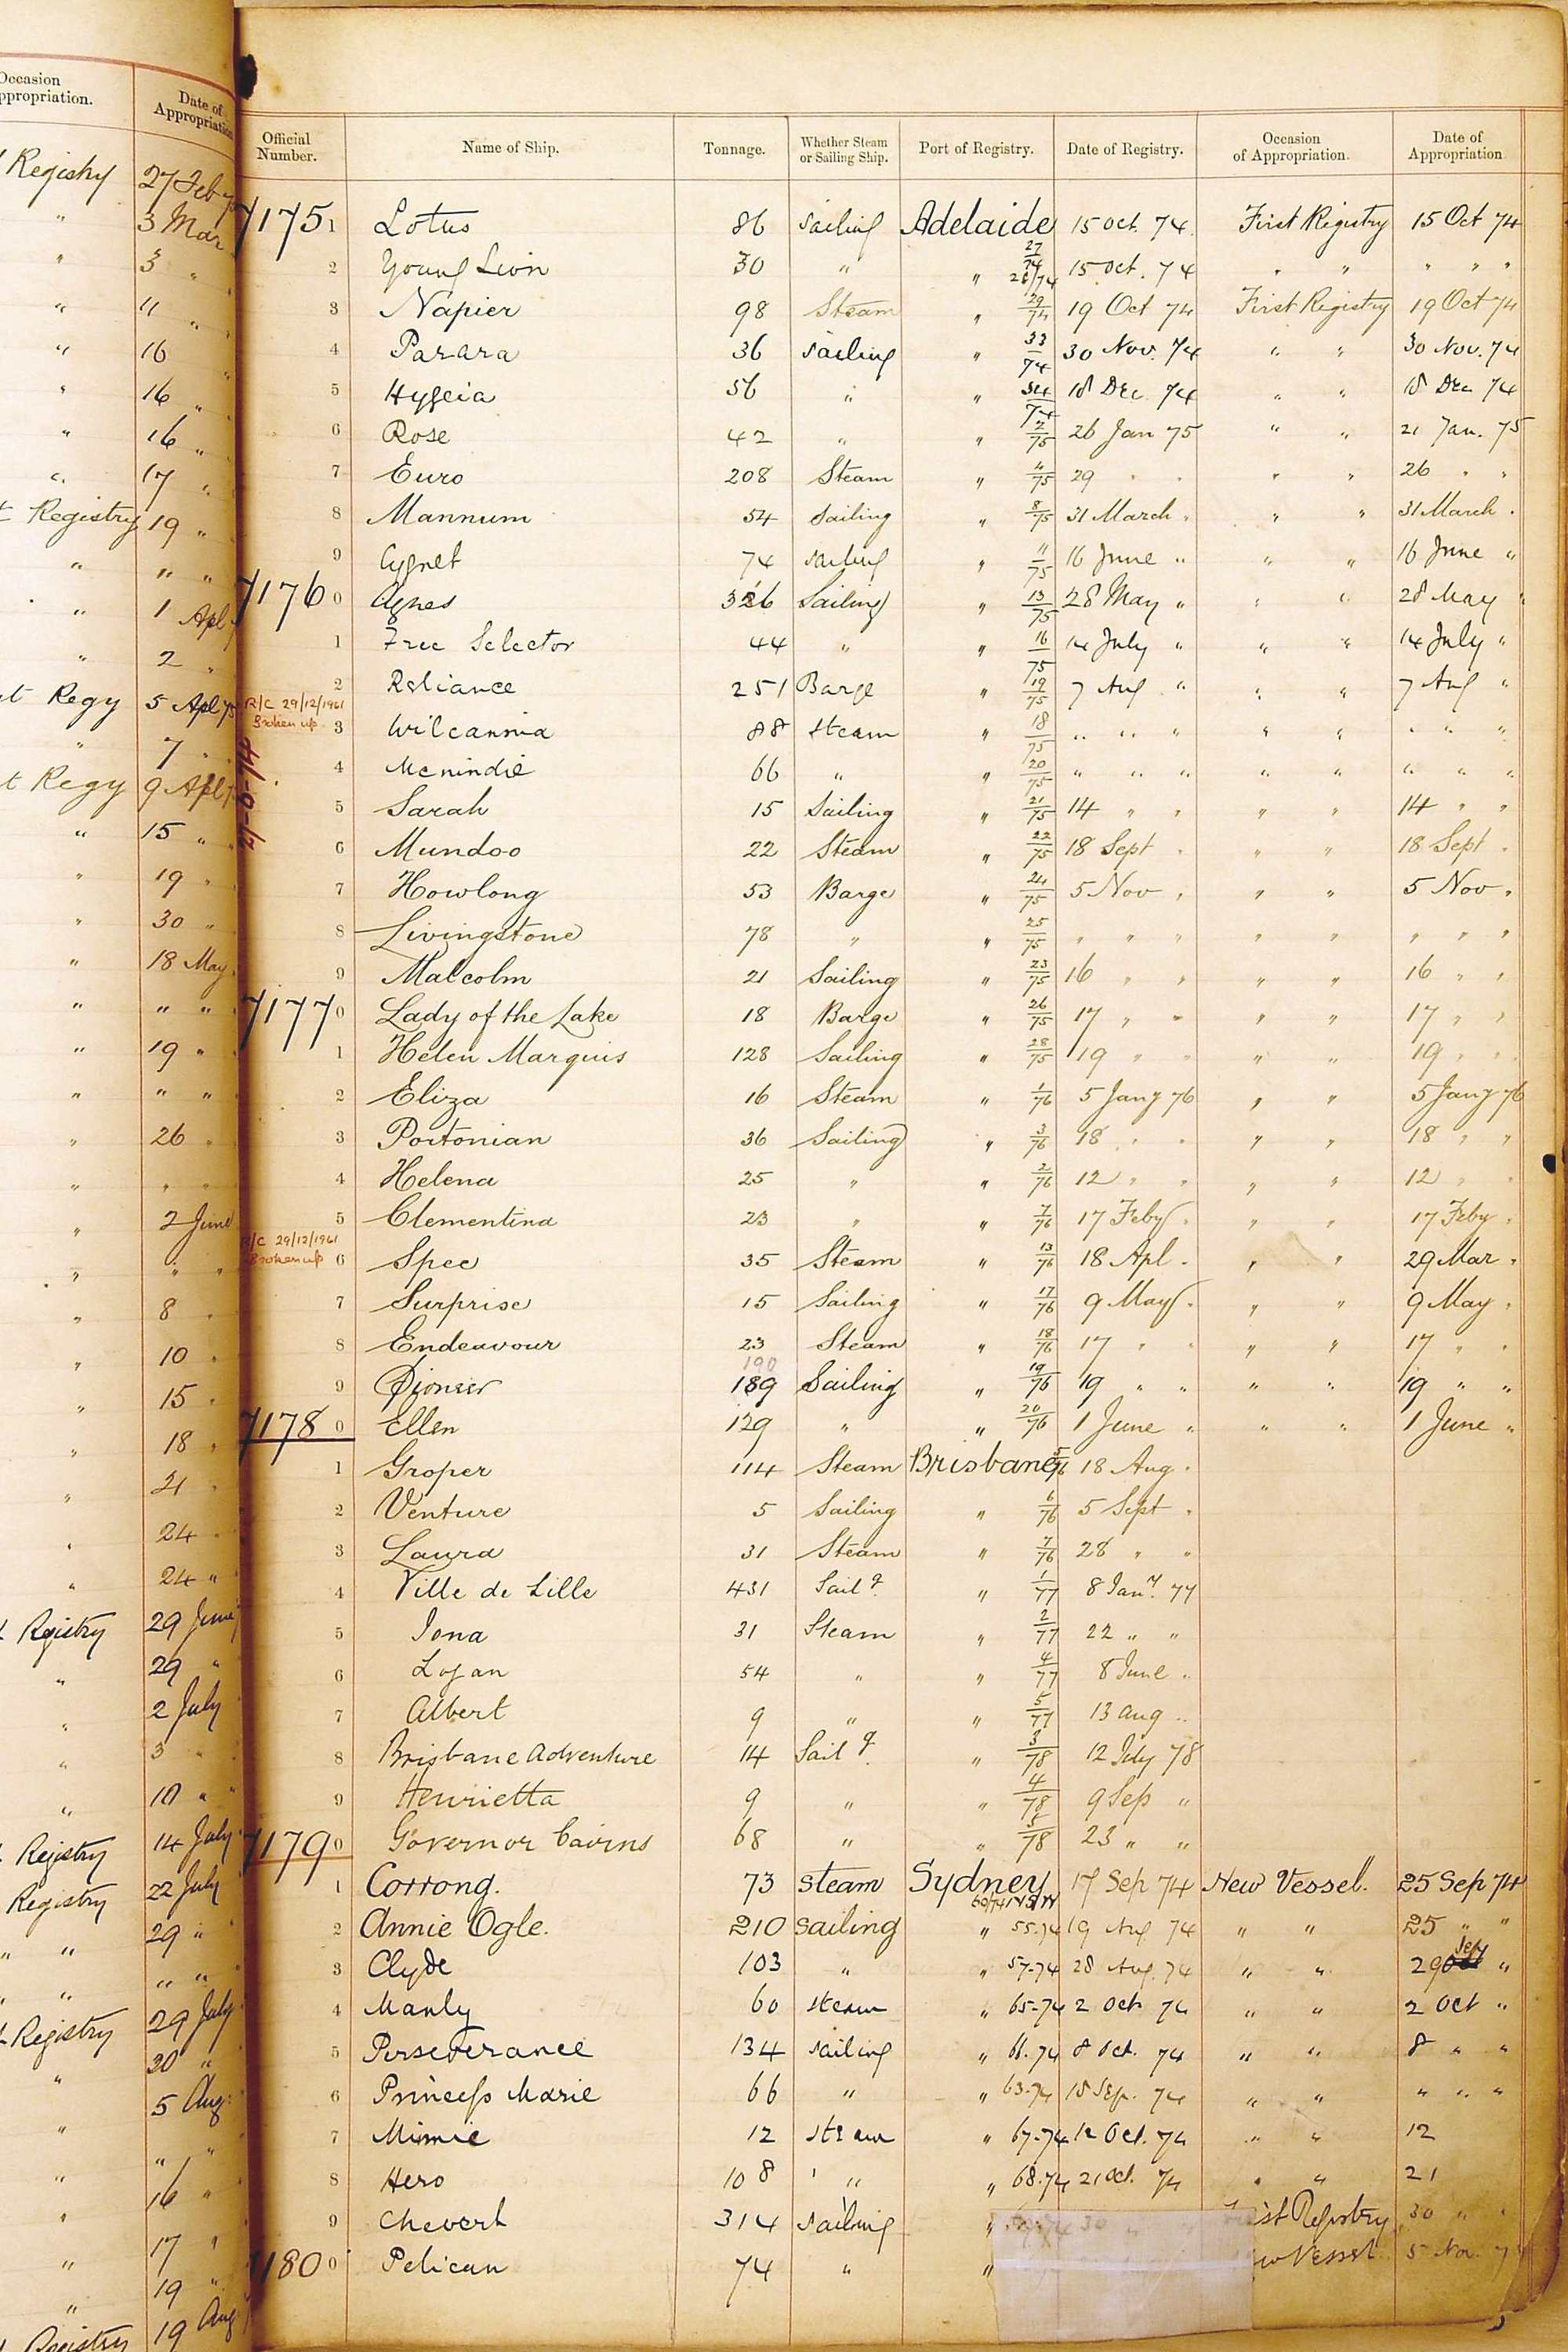 Occasion
ppropriation.
Date of
Appropriation
Registry 27 Feb
" 3 Mar
" 3 "
" 11 "
" 16
" 16 "
" 16 "
" 17 "
Registry 19 "
" " "
" 1 Apl
" 2 "
Regy 5 Apl 75
" 7 "
Regy 9 Apl
" 15 "
" 19 "
" 30 "
" 18 May
" " "
" 19 "
" " "
" 26 "
" " "
" 2 June
" " "
" 8 "
" 10 "
" 15 "
" 18 "
" 21 "
" 24 "
" 24 "
Registry 29 June
" 29 "
" 2 July
" 3 "
" 10 " "
Registry 14 July
Registry 22 July
29 "
" " " "
Registry 29 July
" 30 "
" 5 Aug
" " "
" 16 "
" 17 "
" 19 "
Registry 19 Aug
Official Number. Name of Ship. Tonnage. Whether Steam or Sailing Ship. Port of Registry. Date of Registry. Occasion of Appropriation. Date of Appropriation
71751 Lotus 86 Sailing Adelaide 27/74 15 Oct. 74 First Registry 15 Oct 74
2 Young Lion 30 " " 26/74 15 Oct. 74 " " " " "
3 Napier 98 Steam " 29/74 19 Oct 74 First Registry 19 Oct 74
4 Parara 36 Sailing " 33/74 30 Nov. 74 " " 30 Nov. 74
5 Hygeia 56 " " 34/74 18 Dec 74 " " 18 Dec 74
6 Rose 42 " " 2/75 26 Jan 75 " " 21 Jan. 75
7 Euro 208 Steam " 4/75 29 " " " " 26 " "
8 Mannum 54 Sailing " 8/75 31 March " " " 31 March "
9 Cygnet 74 Sailing " 11/75 16 June " " " 16 June "
71760 Agnes 326 Sailing " 13/75 28 May " " " 28 May "
1 Free Selector 44 " " 16/75 14 July " " " 14 July "
2 Reliance 251 Barge " 19/75 7 Aug " " " 7 Aug "
R/C 29/12/1961
Broken up
3 Wilcannia 88 Steam " 18/75 " " " " " " " "
4 Menindie 66 " " 20/75 " " " " " " " "
5 Sarah 15 Sailing " 21/75 14 " " " " 14 " "
6 Mundoo 22 Steam " 22/75 18 Sept " " " 18 Sept "
7 Howlong 53 Barge " 24/75 5 Nov " " " 5 Nov "
8 Livingstone 78 " " 25/75 " " " " " " " "
9 Malcolm 21 Sailing " 23/75 16 " " " " 16 " "
71770 Lady of the Lake 18 Barge " 26/75 17 " " " " 17 " "
1 Helen Marquis 128 Sailing " 28/75 19 " " " " 19 " "
2 Eliza 16 Steam " 1/76 5 Jany 76 " " 5 Jany 76
3 Portonian 36 Sailing " 3/76 18 " " " " 18 " "
4 Helena 25 " " 2/76 12 " " " " 12 " "
5 Clementina 23 " " 7/76 17 Feby " " " 17 Feby "
R/C 29/12/1961
Broken up
6 Spec 35 Steam " 13/76 18 Apl " " " 29 Mar "
7 Surprise 15 Sailing " 17/76 9 May " " " 9 May "
8 Endeavour 23 Steam " 18/76 17 " " " " 17 " "
190
9 Pioneer 189 Sailing " 19/76 19 " " " " 19 " "
71780 Ellen 129 " " 20/76 1 June " " " 1 June "
1 Groper 114 Steam Brisbane 5/76 18 Aug "
2 Venture 5 Sailing " 6/76 5 Sept "
3 Laura 31 Steam " 7/76 28 " "
4 Ville de Lille 431 Sailg " 1/77 8 Jany. 77
5 Iona 31 Steam " 2/77 22 " "
6 Logan 54 " " 4/77 8 June "
7 Albert 9 " " 5/77 13 Aug "
8 Brisbane Adventure 14 Sailg " 3/78 12 July 78
9 Henrietta 9 " " 4/78 9 Sep "
71790 Governor Cairns 68 " " 5/78 23 " "
1 Corrong. 73 Steam Sydney 17 Sep 74 New Vessel. 25 Sep 74
2 Annie Ogle. 210 Sailing " 55.74 19 Aug 74 " " 25 " "
3 Clyde 103 " " 57-74 28 Aug. 74 " " 29 Sep "
4 Manly 60 Steam " 65-74 2 Oct 74 " " 2 Oct "
5 Perseverance 134 Sailing " 61.74 8 Oct. 74 " " 8 " "
6 Princess Marie 66 " " 63-74 18 Sep. 74 " " " " "
7 Mimie 12 Steam " 67-74 12 Oct. 74 " " 12
8 Hero 108 " " 68.74 21 Oct. 74 " " 21
9 Chevert 314 Sailing " 30 st Registry 30 " "
71800 Pelican 74 " " ew Vessel 5 Nov 74